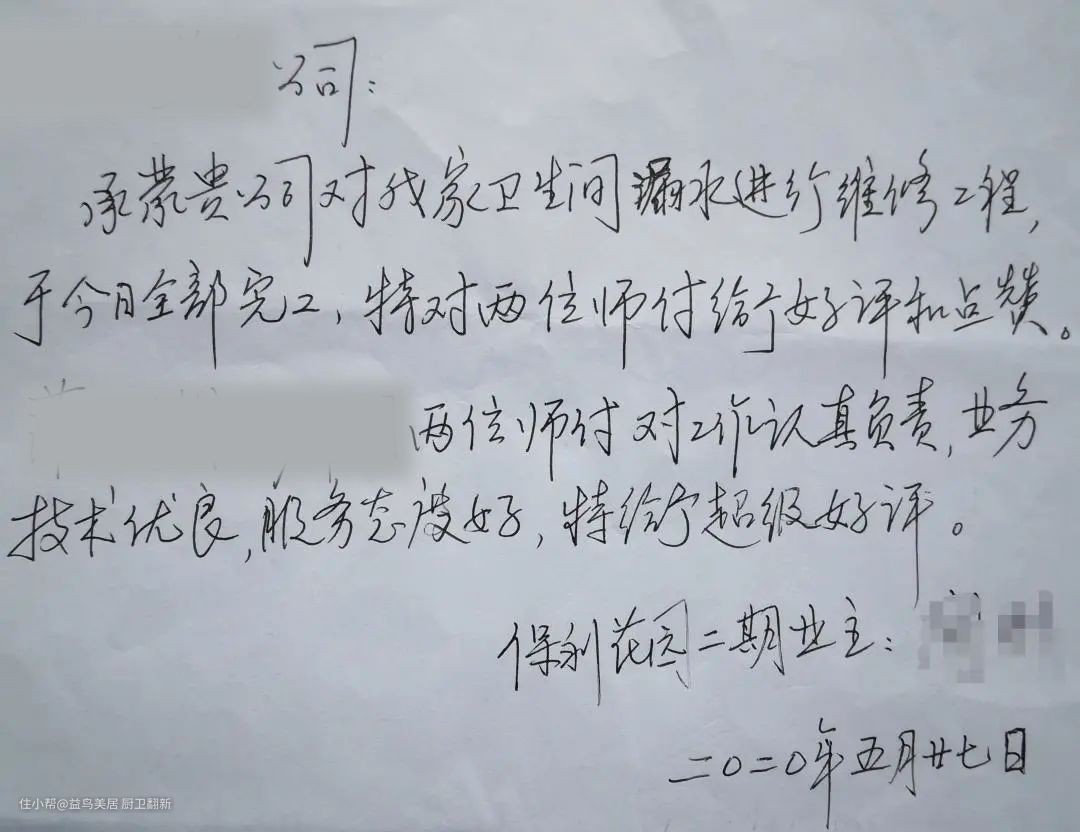 公司：
承蒙贵公司对我家卫生间漏水进行维修工程，
于今日全部完工，特对两位师付给予好评和点赞。
两位师付对工作认真负责，业务
技术优良，服务态度好，特给予超级好评。
保利花园二期业主：
二〇二〇年五月廿七日
住小帮@益鸟美居 厨卫翻新